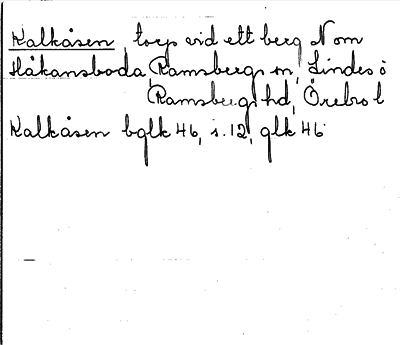 Kalkåsen, torp vid ett berg N om
Håkansboda, Ramsbergs sn, Lindes o
Ramsbergs hd, Örebro l
Kalkåsen bglk 46, s. 12, glk 46